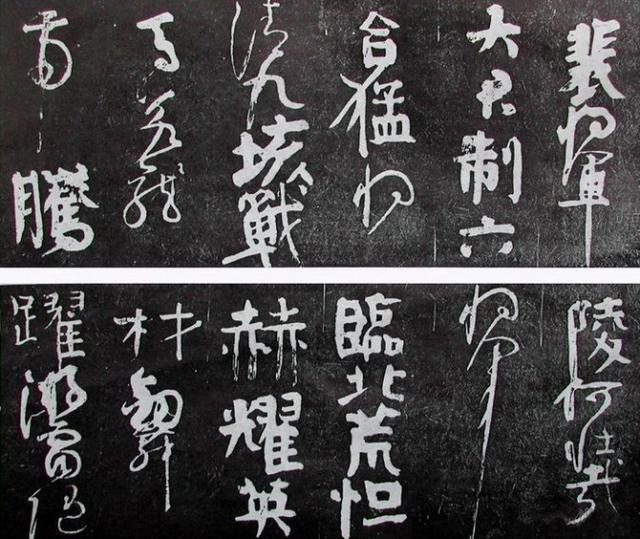 裴將軍
大君制六
合猛將
清九垓戰
馬若龍
虎騰
陵何壯哉
將軍
臨北荒烜
赫耀英
材劍舞
躍游電隨